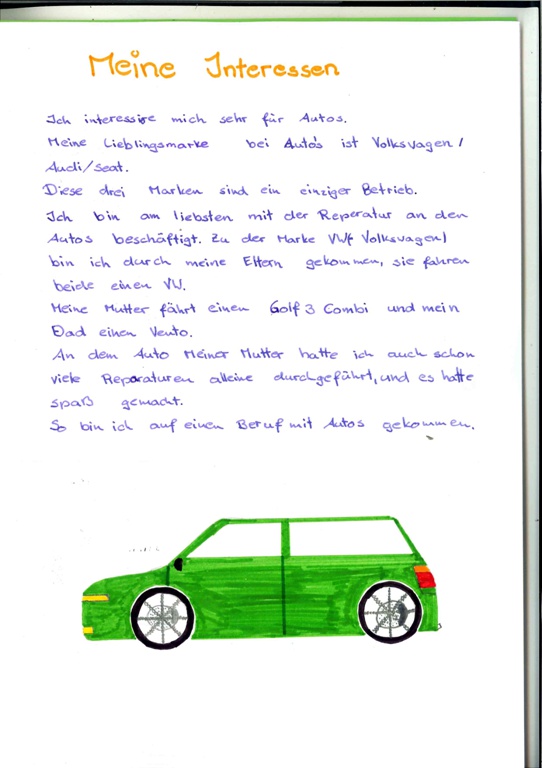 Meine Interessen
Ich interessire mich sehr für Autos.
Meine Lieblingsmarke bei Auto's ist Volksvagen/
Audi/seat.
Diese drei Marken sind ein einziger Betrieb.
Ich bin am liebsten mit der Reperatur an den
Autos beschäftigt. Zu der Marke VW/ Volksvagen/
bin ich durch meine Eltern gekommen, sie fahren
beide einen VW.
Meine Mutter fährt einen Golf 3 Combi und mein
Dad einen Vento.
An dem Auto Meiner Mutter hatte ich auch schon
viele Reparaturen alleine durchgeführt, und es hatte
spaß gemacht.
So bin ich auf einen Beruf mit Autos gekommen.